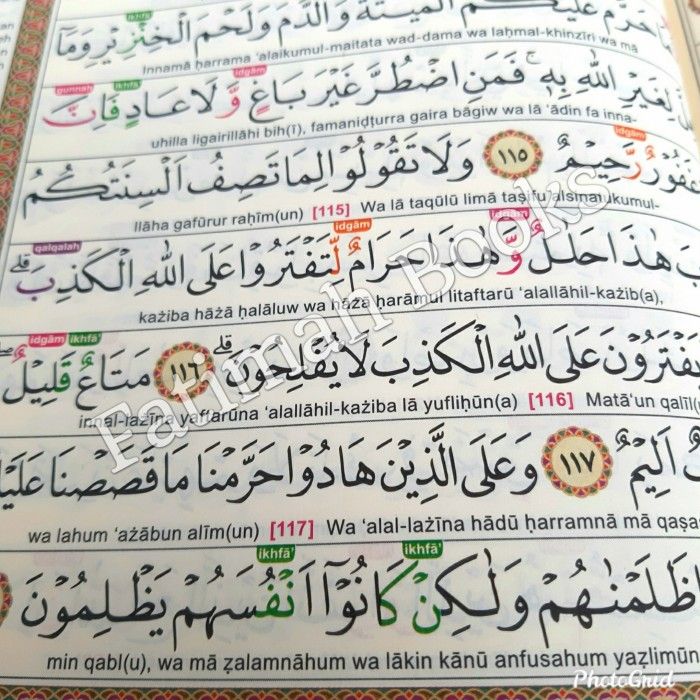 حَرَّمَ عَلَيْكُمُ الْمَيْتَةَ وَالدَّمَ وَلَحْمَ الْخِنْزِيْرِ وَمَآ
ikhfā'
Innamā ḥarrama 'alaikumul-maitata wad-dama wa laḥmal-khinzīri wa mā
لِغَيْرِ اللّٰهِ بِهٖۚ فَمَنِ اضْطُرَّ غَيْرَ بَاغٍ وَّلَا عَادٍ فَاِنَّ
idgām ikhfā' gunnah
uhilla ligairillāhi bih(ī), famaniḍṭurra gaira bāgiw wa lā 'ādin fa inna-
غَفُوْرٌ رَّحِيْمٌ ١١٥ وَلَا تَقُوْلُوْا لِمَا تَصِفُ اَلْسِنَتُكُمُ
idgām
llāha gafūrur raḥīm(un) [115] Wa lā taqūlū limā taṣifu alsinatukumul-
هٰذَا حَلٰلٌ وَّهٰذَا حَرَامٌ لِّتَفْتَرُوْا عَلَى اللّٰهِ الْكَذِبَۗ
idgām idgām qalqalah
każiba hāżā ḥalāluw wa hāżā ḥarāmul litaftarū 'alallāhil-każib(a),
يَفْتَرُوْنَ عَلَى اللّٰهِ الْكَذِبَ لَا يُفْلِحُوْنَۗ ١١٦ مَتَاعٌ قَلِيْلٌۖ
ikhfā' idgām
innal-lażīna yaftarūna 'alallāhil-każiba lā yufliḥūn(a) [116] Matā'un qalīl(u
اَلِيْمٌ ١١٧ وَعَلَى الَّذِيْنَ هَادُوْا حَرَّمْنَا مَا قَصَصْنَا
wa lahum 'ażābun alīm(un) [117] Wa 'alal-lażīna hādū ḥarramnā mā qaṣa
ظَلَمْنٰهُمْ وَلٰكِنْ كَانُوْٓا اَنْفُسَهُمْ يَظْلِمُوْنَ
ikhfā' ikhfā'
min qabl(u), wa mā ẓalamnāhum wa lākin kānū anfusahum yaẓlimūn
Fatimah Books
PhotoGrid